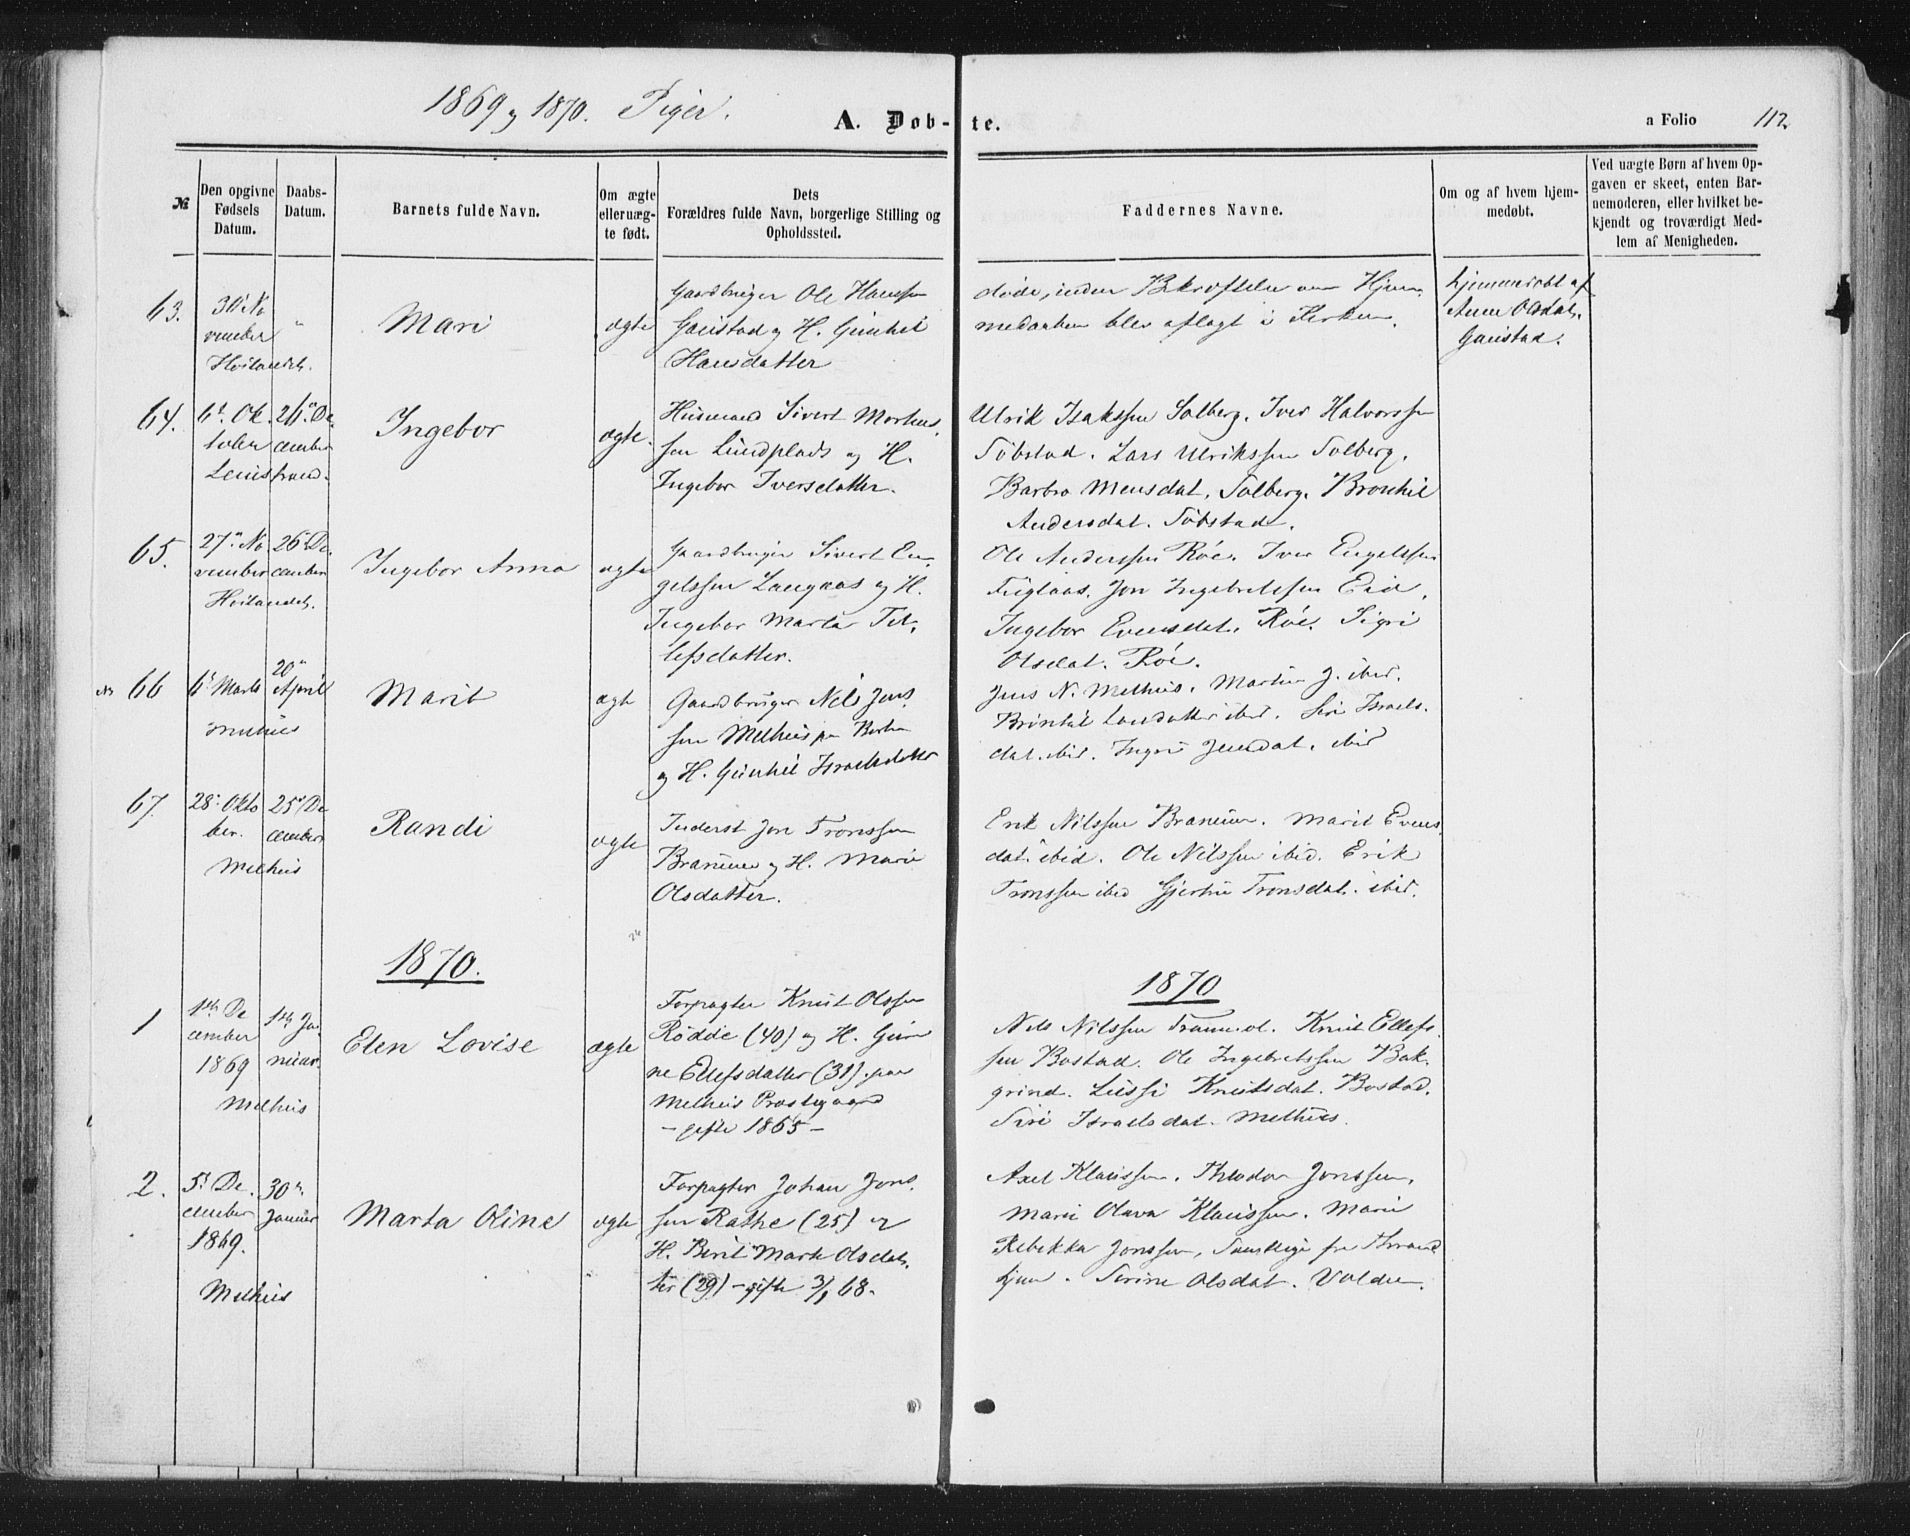 1869 & 1870. Piger.
A. Døb-te.
a Folio 112.
№
Den opgivne Fødsels Datum.
Daabs-Datum.
Barnets fulde Navn.
Om ægte eller uæg-te født.
Dets
Forældres fulde Navn, borgerlige Stilling og
Opholdssted.
Faddernes Navne.
Om og af hvem hjem-
medøbt.
Ved uægte Børn af hvem Op-
gaven er skeet, enten Bar-
nemoderen, eller hvilket be-
kjendt og troværdigt Med-
lem af Menigheden.
63. 30' No
vember "
Høilandet.
Mari
ægte
Gaardbruger Ole Hanssen
Gaustad og H. Gunhil
Hansdatter
døde, inden Bekræftelse om Hjem-
medaaben blev aflagt i Kirken.
hjemmedøbt af
Anne Olsdat.
Gaustad.
64. 6t. Ok. 26n De.
tober cember
Leinstrand.
Ingebor
ægte.
Husmand Sivert Morten.
sen Lundplads og H.
Ingebor Iversdatter.
Ulrik Isakssen Solberg. Iver Halvorssen
Töbstad. Lars Ulrikssen Solberg.
Barbro Monsdat. Solberg. Bronhil
Andersdat. Töbstad.
65. 27n No 26n De.
vember cember
Høilandet.
Ingebor Anna
ægte
Gaardbruger Sivert En-
gelssen Langaas og H.
Ingebor Marta Tel.
lefsdatter.
Ole Anderssen Röe. Iver Engelssen
Fuglaas. Jon Ingebretssen Eid.
Ingebor Evensdat. Röe. Sigri
Olsdat. Röe.
66 6t Marts 20n April
Melhus
Marit
ægte
Gaardbruger Nils Jens.
sen Melhus
og H. Gunhil Israelsdatter
Jens N. Melhus. Martin J. ibid.
ibid. Siri Israels.
dat. ibid. Ingri Jensdat. ibid
67. 28' Okto 25n De
ber. cember
Melhus
Randi
ægte
Inderst Jon Tronssen
og H. Marie
Olsdatter.
Erik Nilssen Marit Evens.
dat. ibid. Ole Nilssen ibid. Erik
Tronssen ibid Gjertru Tronsdat. ibid.
1870.
1870
1 1ste De 1ste Ja
cember nuar.
1869
Melhus
Elen Lovise
ægte
Forpagter Knut Olssen
Rödde (40) og H. Gun
ne Ellefsdatter (31) paa
Melhus Prestegaard
- gifte 1865 -
Nils Nilssen Knut Ellefs.
sen Bostad. Ole Ingebretssen Bak-
grind. Lussi Knutsdat. Bostad.
Siri Israelsdat. Melhus.
2. 5t De. 30n.
cember Januar
1869.
Melhus
Marta Oline
ægte
Forpagter Johan Jons.
sen Rathe (25) og
H. Berit Marta Olsdat.
ter (29) - gifte 3/1 68.
Axel Klaussen. Theodor Jonssen.
Marie Olava Klaussen. Marie
Rebekka Jonssen, Samtlige fra Thrond
hjem. Serine Olsdat. Volden.